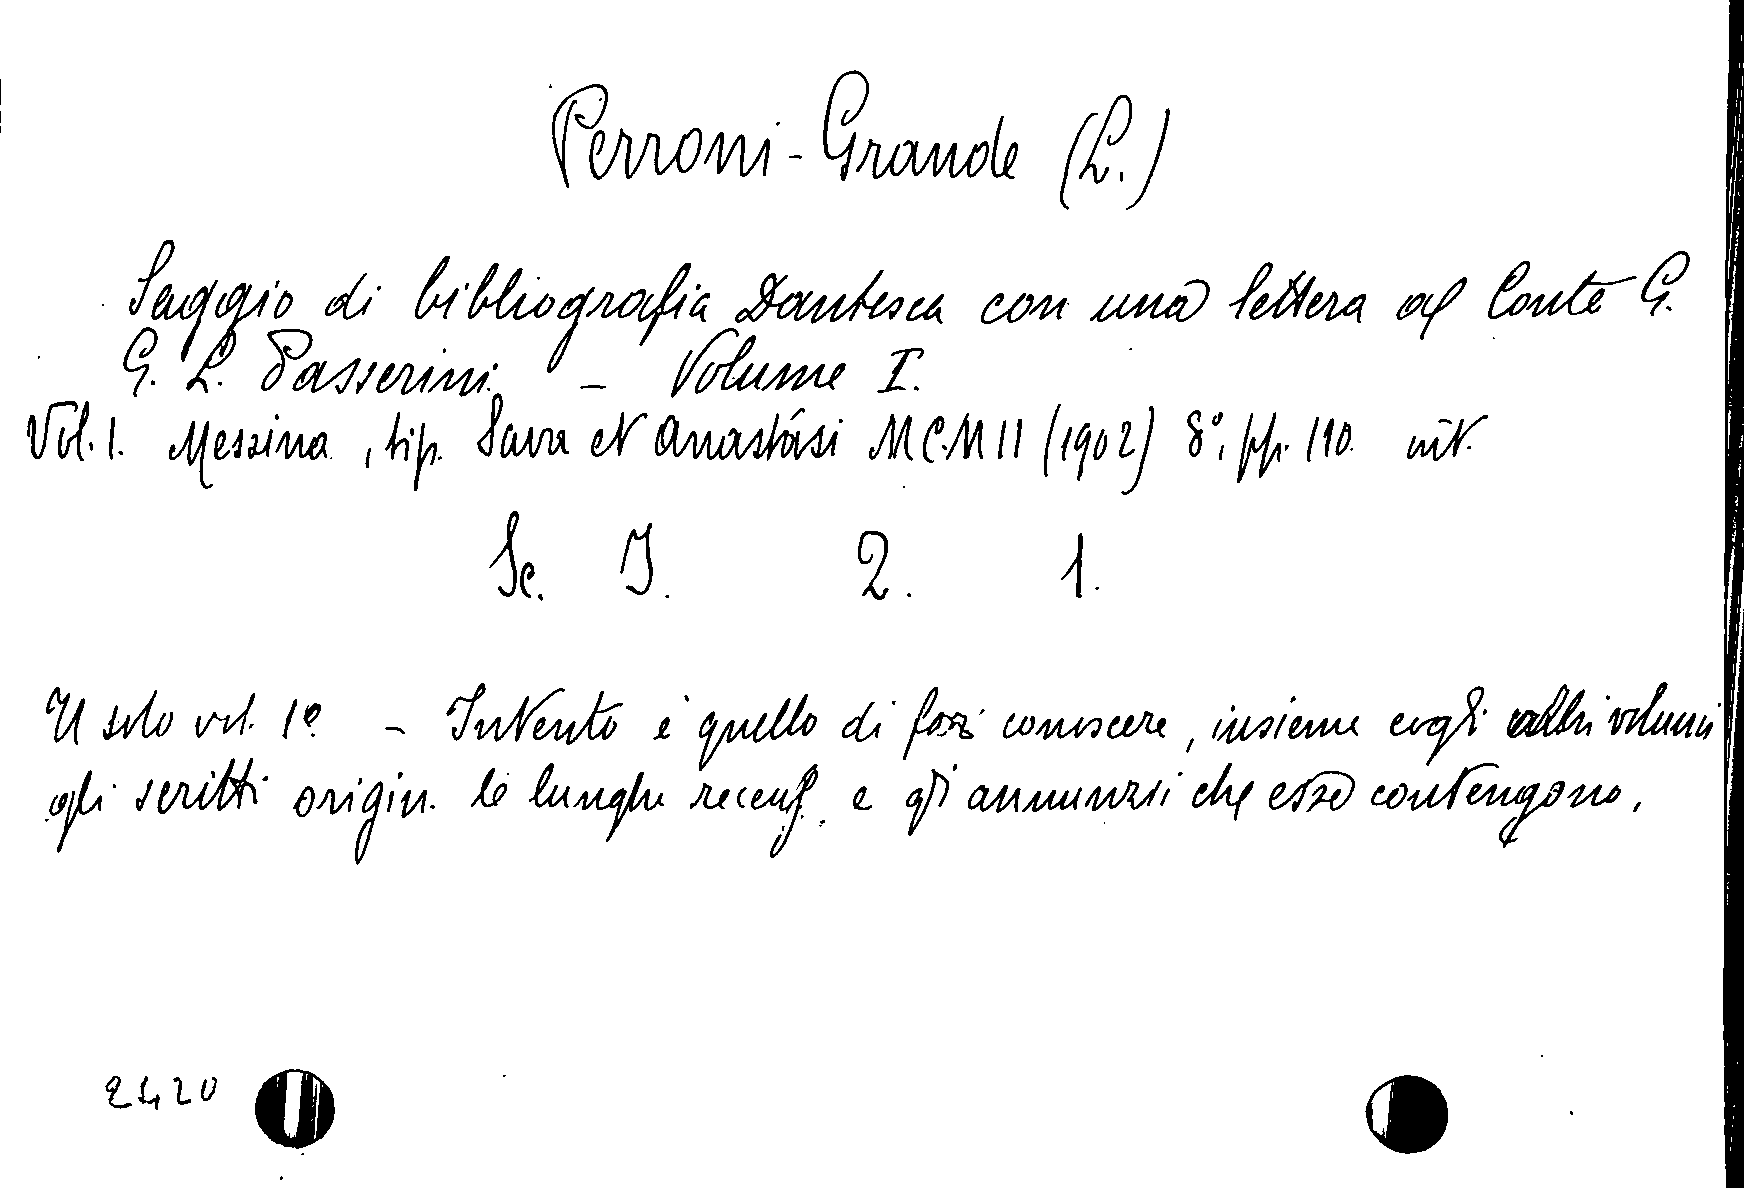 Perroni-Grande (L.)
Saggio di bibliografia Dantesca con una lettera al Conte G.
G. L. Passerini. - Volume I.
Vol. 1. Messina, tip. Sava et Anastási MCMII (1902) 8°, pp. 110. int.
Sc. I. 2. 1.
Il solo vol. 1º - Intento è quello di far conoscere, insieme cogli altri volumi
gli scritti origin. le lunghe recens. e gli annunzii che esso contengono.
2420